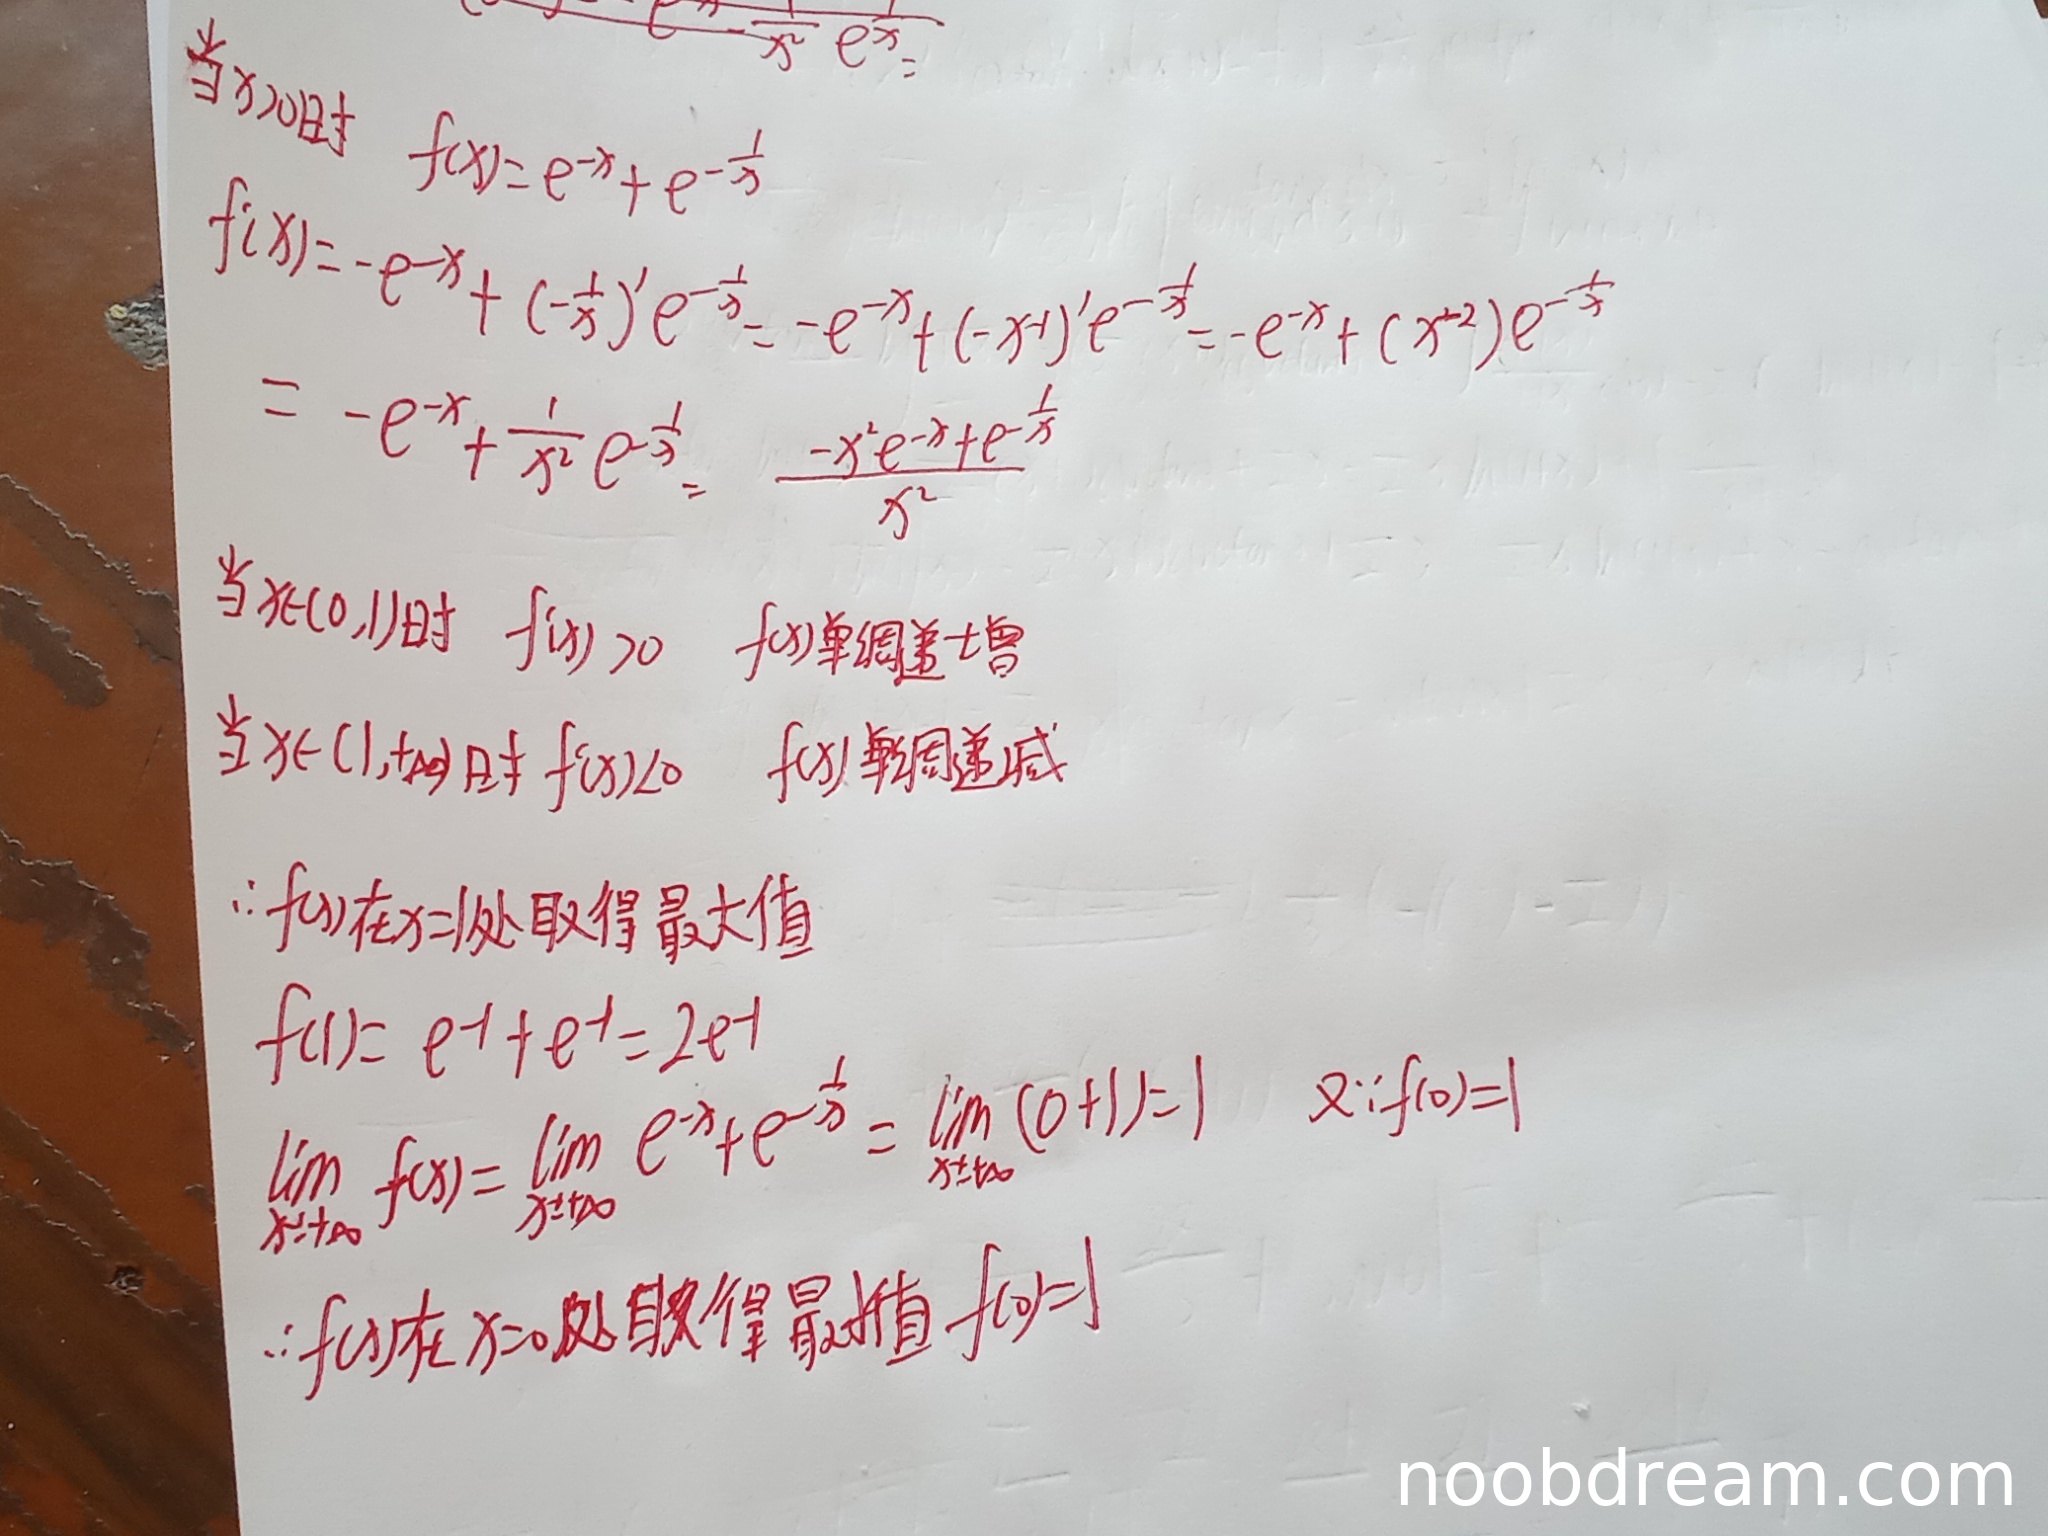 当x>0时 f(x)=e^{-x}+e^{-\frac{1}{x}}
f'(x)=-e^{-x}+(-\frac{1}{x})'e^{-\frac{1}{x}}=-e^{-x}+(-x^{-1})'e^{-\frac{1}{x}}=-e^{-x}+(x^{-2})e^{-\frac{1}{x}}
=-e^{-x}+\frac{1}{x^2}e^{-\frac{1}{x}}=\frac{-x^2e^{-x}+e^{-\frac{1}{x}}}{x^2}
当x∈(0,1)时 f'(x)>0 f(x)单调递增
当x∈(1,+∞)时 f'(x)<0 f(x)单调递减
∴f(x)在x=1处取得最大值
f(1)=e^{-1}+e^{-1}=2e^{-1}
\lim_{x→+∞} f(x)=\lim_{x→+∞} e^{-x}+e^{-\frac{1}{x}}=\lim_{x→+∞}(0+1)=1 又∵f(0)=1
∴f(x)在x=0处取得最大值f(0)=1
noobdream.com